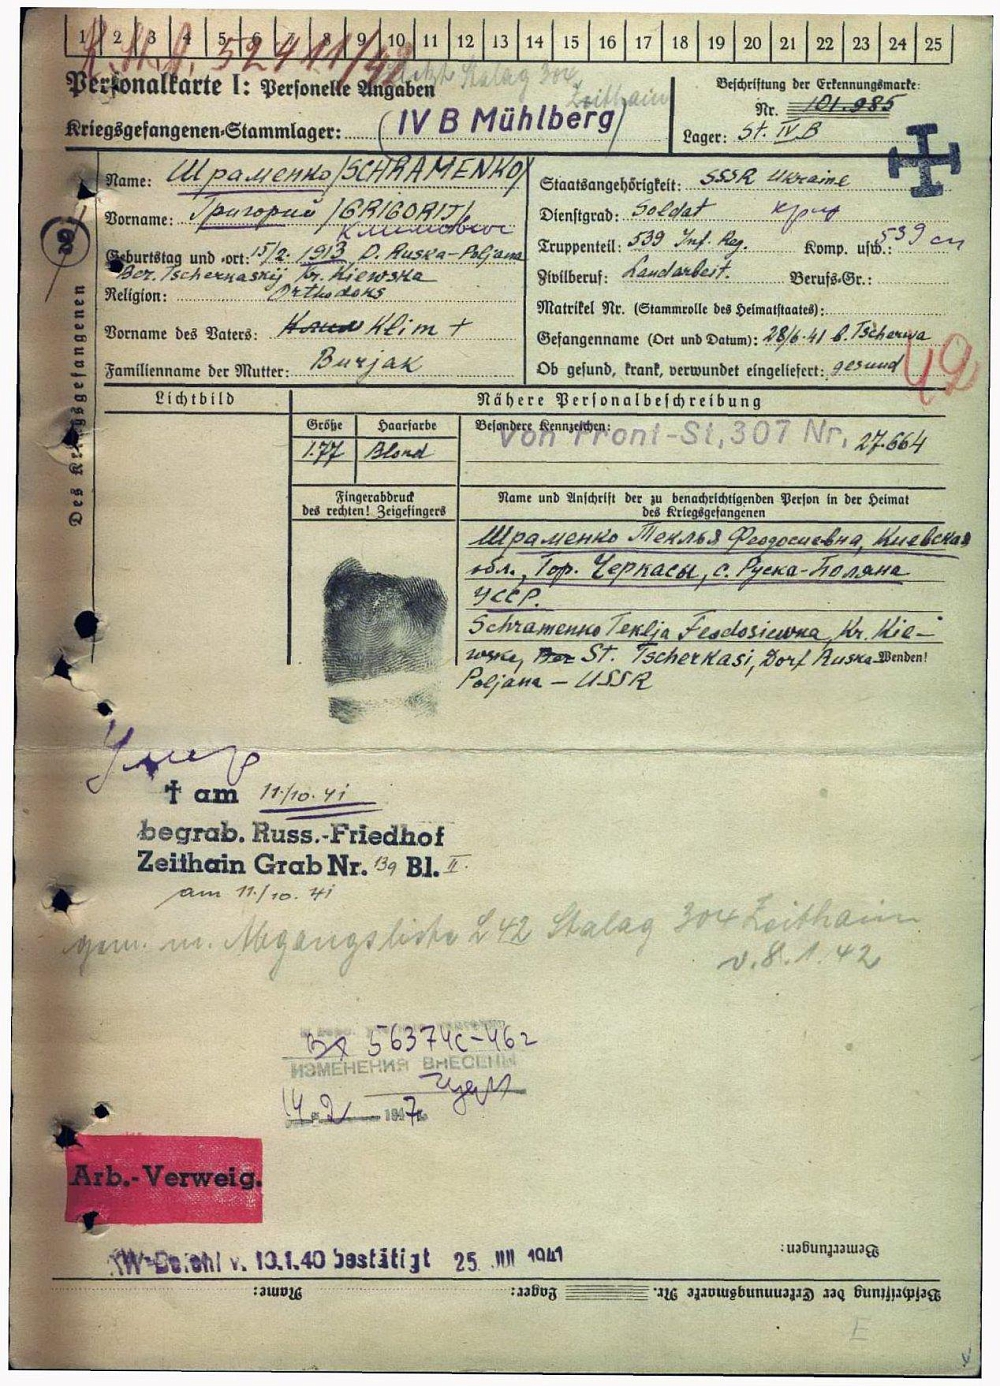 1 2 3 4 5 6 7 8 9 10 11 12 13 14 15 16 17 18 19 20 21 22 23 24 25
52411/42
Stalag 304
Zeithain
Personalkarte I: Personelle Angaben
Beschriftung der Erkennungsmarke:
Nr. 101.985
Kriegsgefangenen-Stammlager: (IV B Mühlberg)
Lager: St. IV B
Des Kriegsgefangenen
Name: Шраменко /SCHRAMENKO/
Vorname: Григорий /GRIGORIJ/
Климович
Geburtstag und -ort: 15/2. 1913 D. Ruska-Poljana
Bez. Tscherkaskij Kr. Kiewska
Religion: Orthodoks
Vorname des Vaters: Klim +
Familienname der Mutter: Burjak
Staatsangehörigkeit: SSSR Ukraine
Dienstgrad: Soldat
Truppenteil: 539 Inf. Reg. Komp. usw.: 539 сп
Zivilberuf: Landarbeit. Berufs-Gr.:
Matrikel Nr. (Stammrolle des Heimatstaates):
Gefangennahme (Ort und Datum): 28/6.41 b. Tscherwa
Ob gesund, krank, verwundet eingeliefert: gesund
42
Lichtbild
Nähere Personalbeschreibung
Größe Haarfarbe Besondere Kennzeichen:
1.77 Blond
Von Front-St, 307 Nr, 27.664
Fingerabdruck
des rechten! Zeigefingers
Name und Anschrift der zu benachrichtigenden Person in der Heimat
des Kriegsgefangenen
Шраменко Теклья Феодосиевна, Киевская
обл., Гор. Черкасы, с. Руска-Поляна
УССР.
Schramenko Teklja Feodosiewna, Kr. Kie-
wske, St. Tscherkasi, Dorf Ruska- Wenden!
Poljana – USSR
Умер
† am 11/10.41
begrab. Russ.-Friedhof
Zeithain Grab Nr. 139 Bl. II.
am 11/10.41
gem. m. Abgangsliste L 42 Stalag 304 Zeithain
v. 8.1.42
56374с-46г
ИЗМЕНЕНИЯ ВНЕСЕНЫ
14 2 1947
Arb.-Verweig.
OKW-Befehl v. 10.1.40 bestätigt 25. JUI 1941
Bemerkungen:
Beschriftung der Erkennungsmarke Nr. Lager: Name:
E